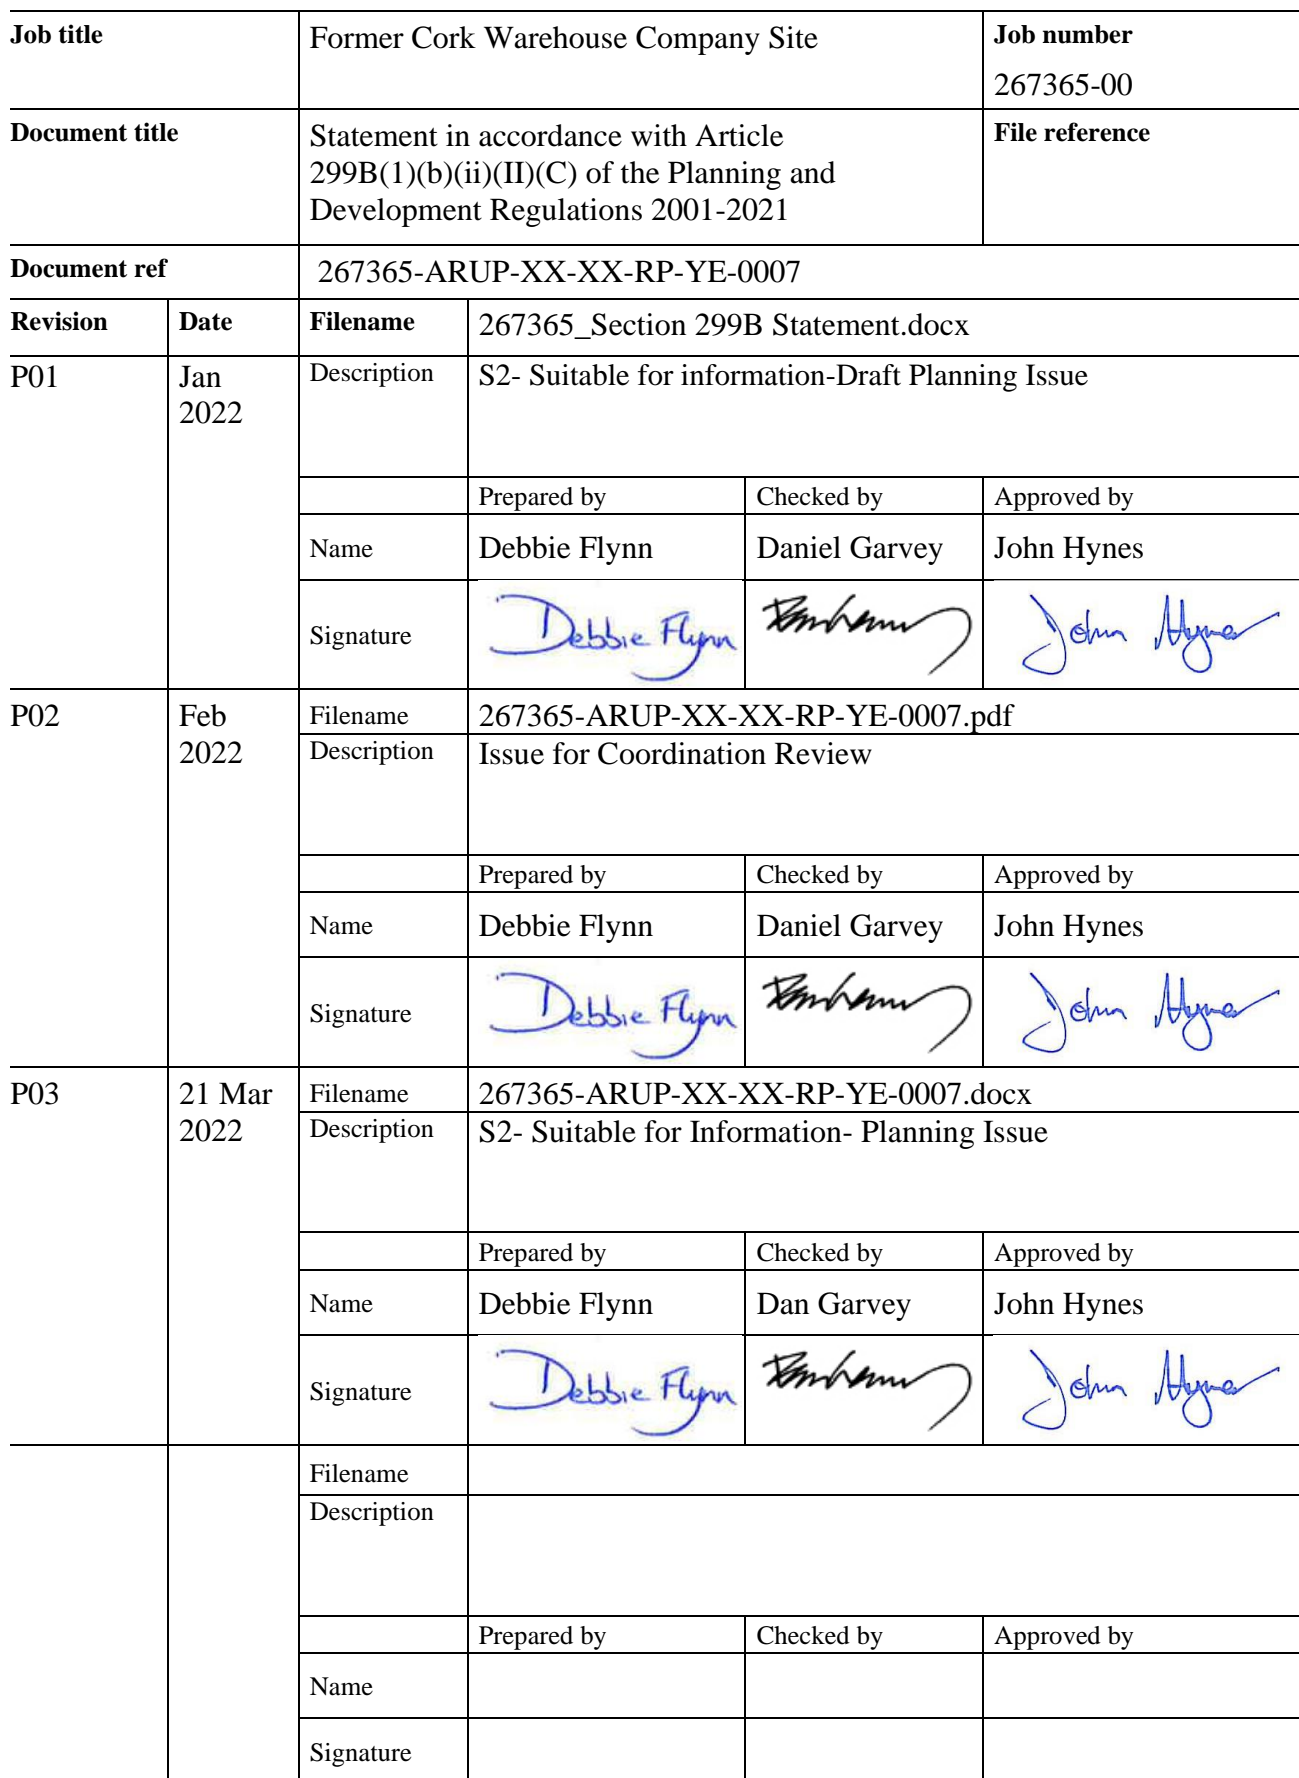 Job title
Former Cork Warehouse Company Site
Job number
267365-00
Document title
Statement in accordance with Article
299B(1)(b)(ii)(II)(C) of the Planning and
Development Regulations 2001-2021
File reference
Document ref
267365-ARUP-XX-XX-RP-YE-0007
Revision Date Filename 267365_Section 299B Statement.docx
P01 Jan Description S2- Suitable for information-Draft Planning Issue
2022
Prepared by Checked by Approved by
Name Debbie Flynn Daniel Garvey John Hynes
Signature Debbie Flynn John Hynes
P02 Feb Filename 267365-ARUP-XX-XX-RP-YE-0007.pdf
2022 Description Issue for Coordination Review
Prepared by Checked by Approved by
Name Debbie Flynn Daniel Garvey John Hynes
Signature Debbie Flynn John Hynes
P03 21 Mar Filename 267365-ARUP-XX-XX-RP-YE-0007.docx
2022 Description S2- Suitable for Information- Planning Issue
Prepared by Checked by Approved by
Name Debbie Flynn Dan Garvey John Hynes
Signature Debbie Flynn John Hynes
Filename
Description
Prepared by Checked by Approved by
Name
Signature